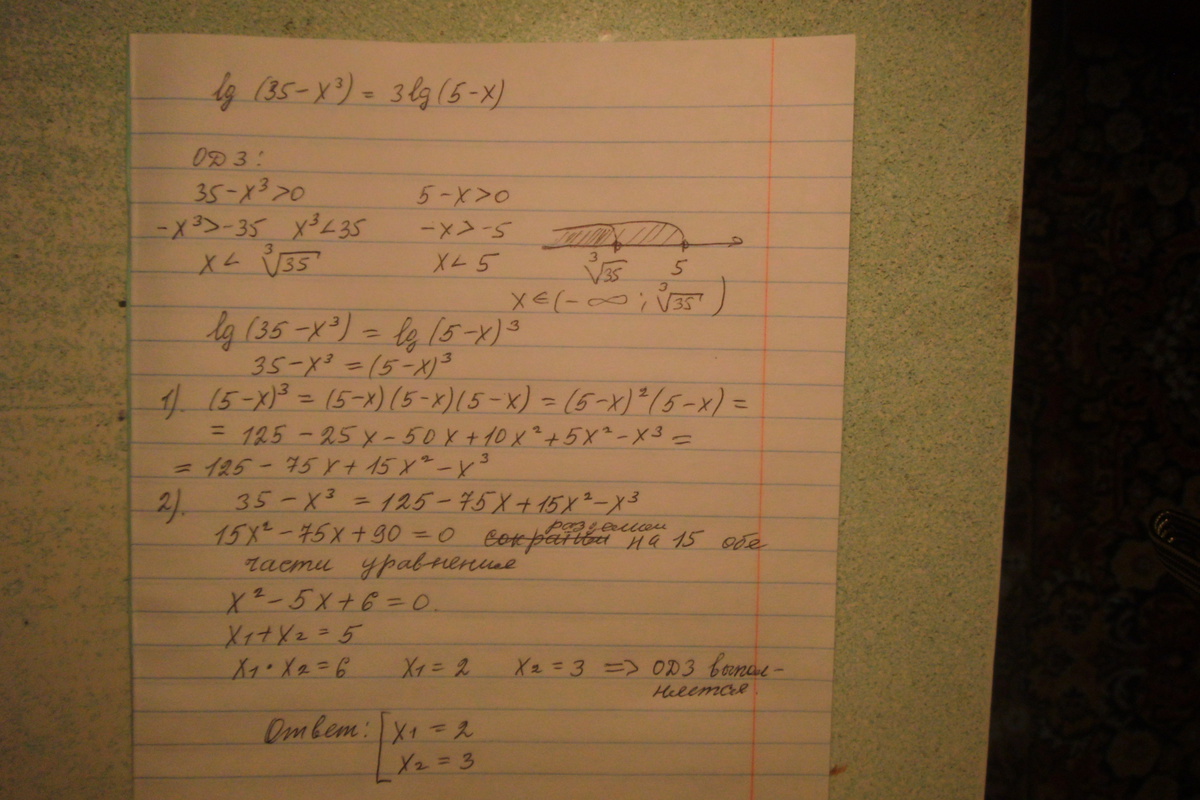 lg (35-x³) = 3lg(5-x)
ОДЗ:
35-x³>0 5-x>0
-x³>-35 x³<35 -x>-5
x< ∛35 x<5 ∛35 5
x∈(-∞; ∛35)
lg(35-x³) = lg(5-x)³
35-x³ = (5-x)³
1). (5-x)³ = (5-x)(5-x)(5-x) = (5-x)²(5-x) =
= 125 - 25x - 50x + 10x² + 5x² - x³ =
= 125 - 75x + 15x² - x³
2). 35 - x³ = 125 - 75x + 15x² - x³
15x² - 75x + 90 = 0 разделим на 15 обе
части уравнения
x² - 5x + 6 = 0.
x₁+x₂ = 5
x₁·x₂ = 6 x₁ = 2 x₂ = 3 => ОДЗ выпол-
няется.
Ответ: [x₁ = 2
x₂ = 3